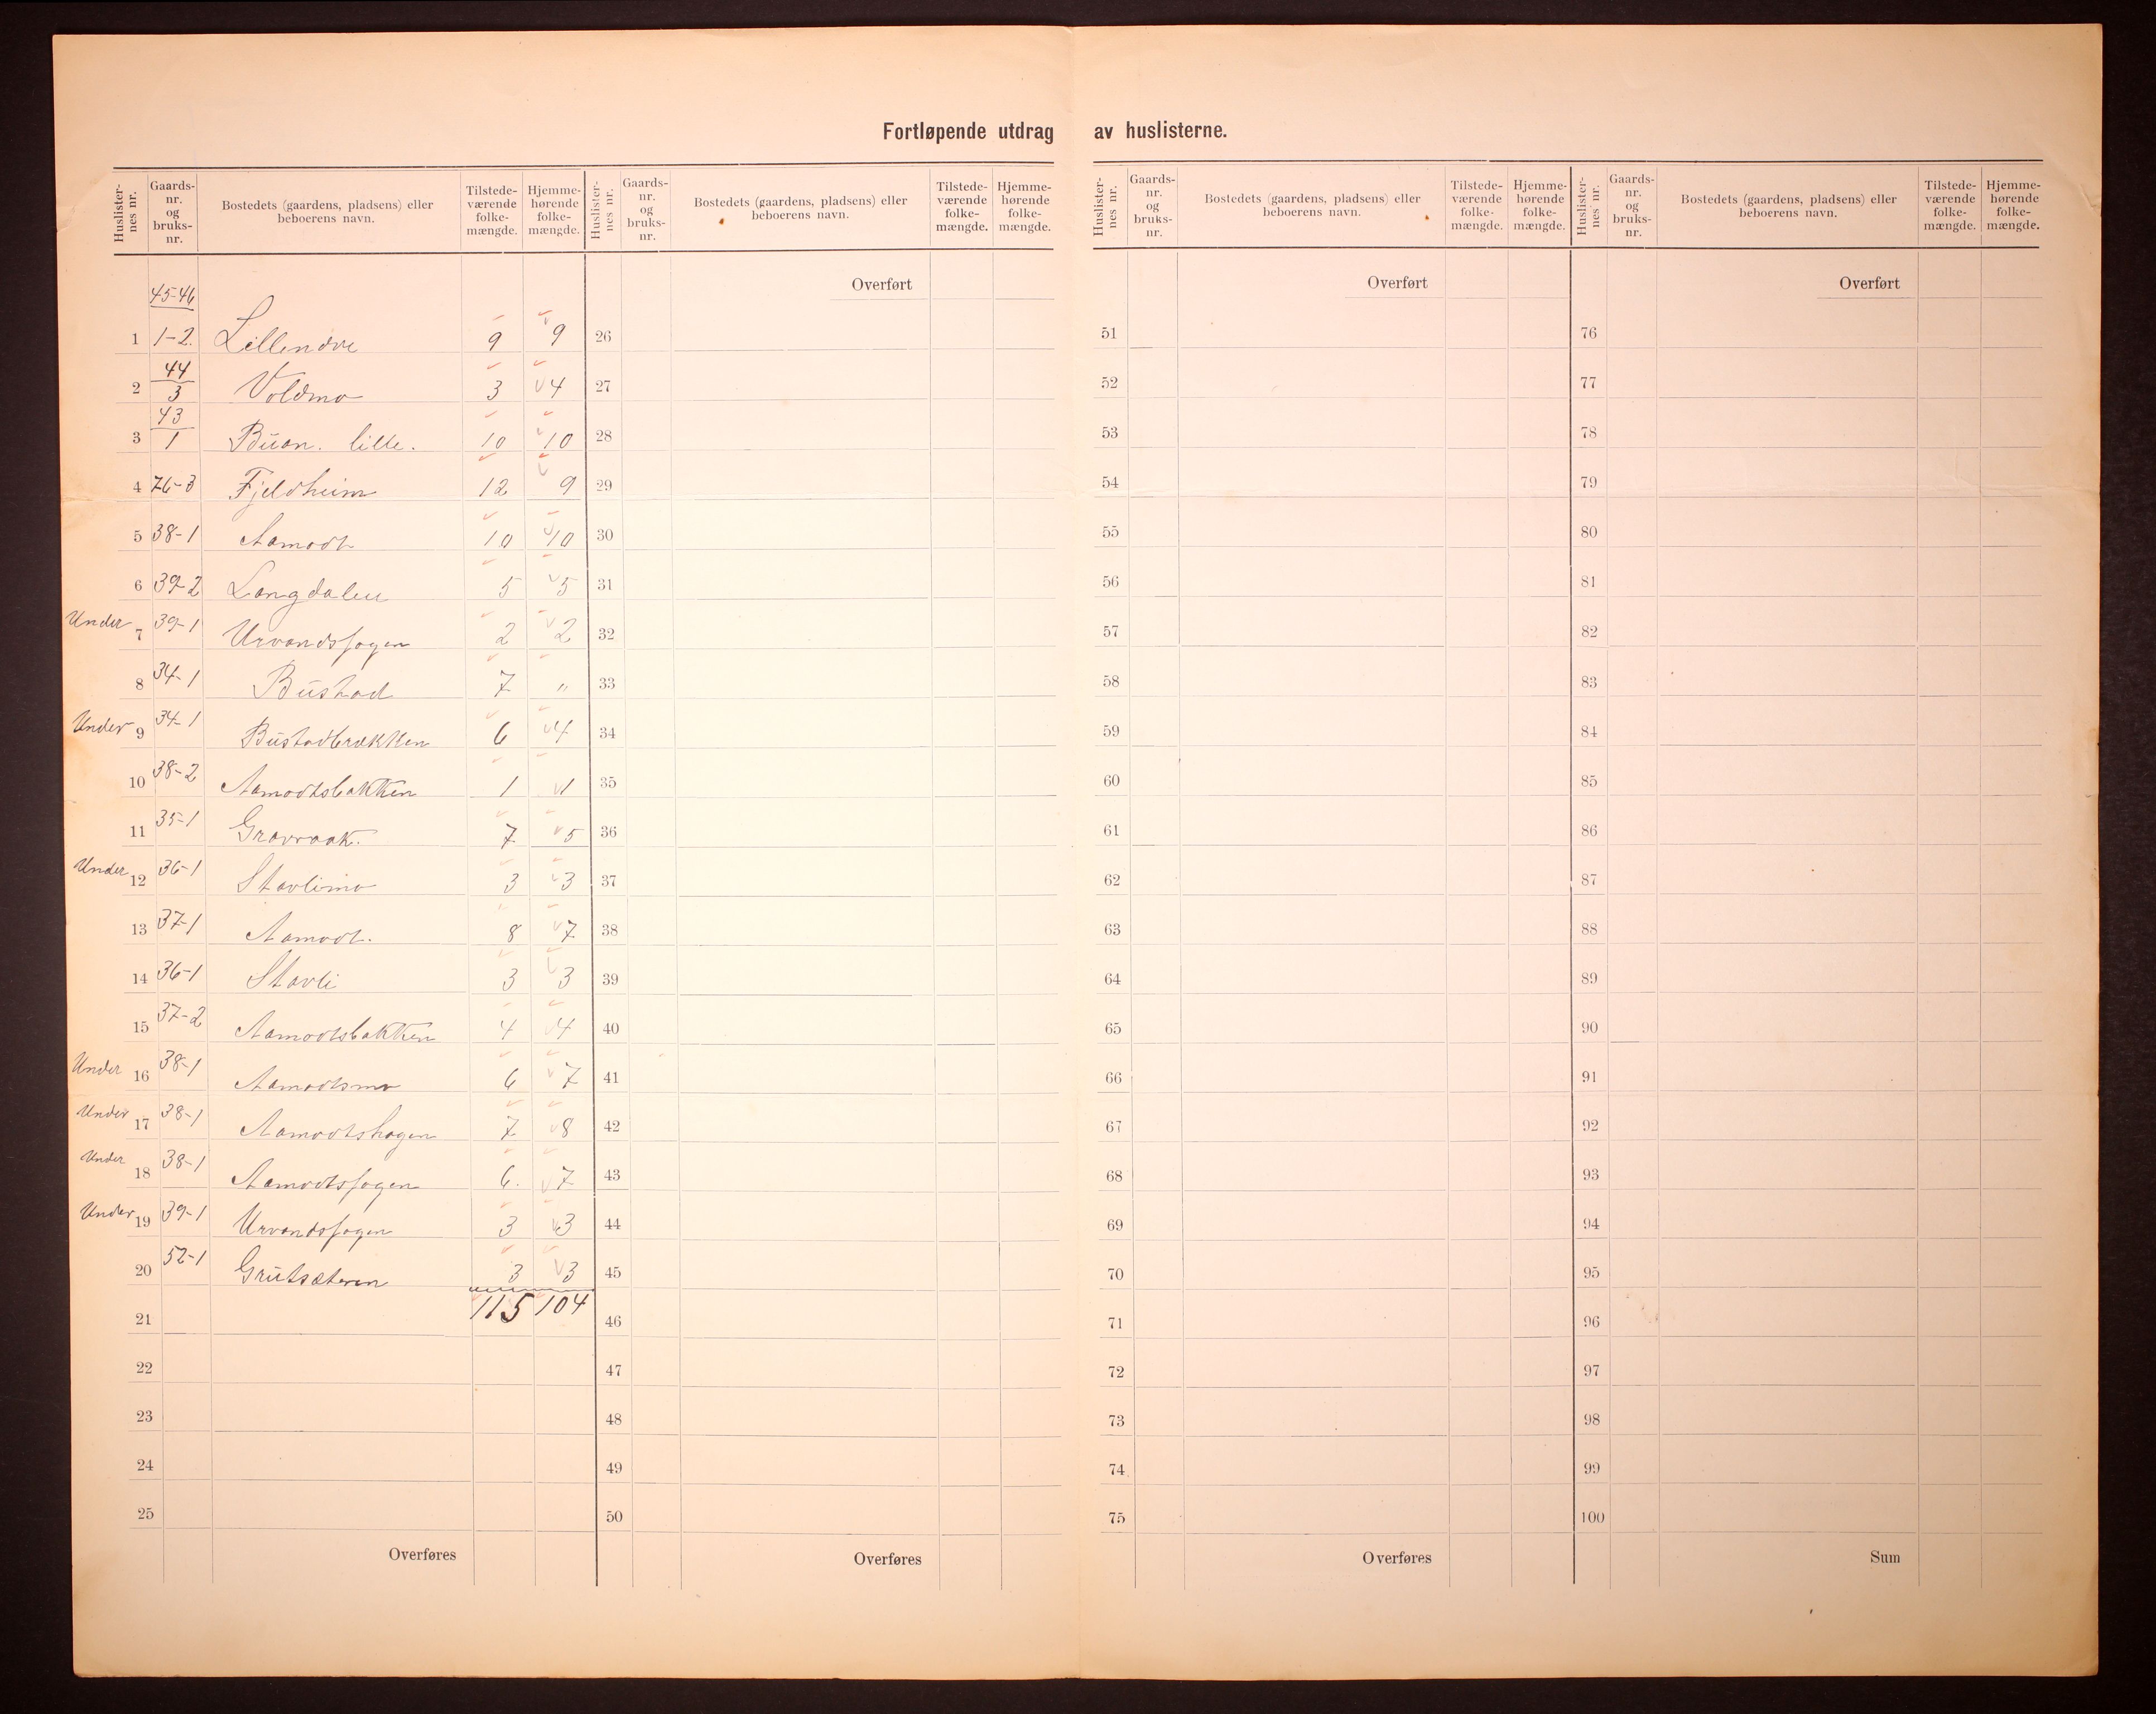 Fortløpende utdrag av huslisterne.
Huslisternes nr. Gaards-nr. og bruks-nr. Bostedets (gaardens, pladsens) eller beboerens navn. Tilstede-værende folke-mængde. Hjemme-hørende folke-mængde.
Huslisternes nr. Gaards-nr. og bruks-nr. Bostedets (gaardens, pladsens) eller beboerens navn. Tilstede-værende folke-mængde. Hjemme-hørende folke-mængde.
Huslisternes nr. Gaards-nr. og bruks-nr. Bostedets (gaardens, pladsens) eller beboerens navn. Tilstede-værende folke-mængde. Hjemme-hørende folke-mængde.
Huslisternes nr. Gaards-nr. og bruks-nr. Bostedets (gaardens, pladsens) eller beboerens navn. Tilstede-værende folke-mængde. Hjemme-hørende folke-mængde.
45-46
1 1-2. Lillendre 9 9
44
2 3 Voldmo 3 4
43
3 1 Buan. lille. 10 10
4 76-3 Fjeldheim 12 9
5 38-1 Aamodt 10 10
6 39-2 Langdalen 5 5
Under 7 39-1 Urvandsjogen 2 2
8 34-1 Bustad 7 "
Under 9 34-1 Bustadbrækken 6 4
10 38-2 Aamodtsbakken 1 1
11 35-1 Gravraak. 7 5
Under 12 36-1 Stavlimo 3 3
13 37-1 Aamodt. 8 7
14 36-1 Stavli 3 3
15 37-2 Aamodtsbakken 4 4
Under 16 38-1 Aamodtsmo 6 7
Under 17 38-1 Aamodtshagen 7 8
Under 18 38-1 Aamodtsjogen 6. 7
Under 19 39-1 Urvandsjogen 3 3
20 52-1 Grutsæteren 3 3
21 115 104
22
23
24
25
Overføres
Overført
26
27
28
29
30
31
32
33
34
35
36
37
38
39
40
41
42
43
44
45
46
47
48
49
50
Overføres
Overført
51
52
53
54
55
56
57
58
59
60
61
62
63
64
65
66
67
68
69
70
71
72
73
74
75
Overføres
Overført
76
77
78
79
80
81
82
83
84
85
86
87
88
89
90
91
92
93
94
95
96
97
98
99
100
Sum